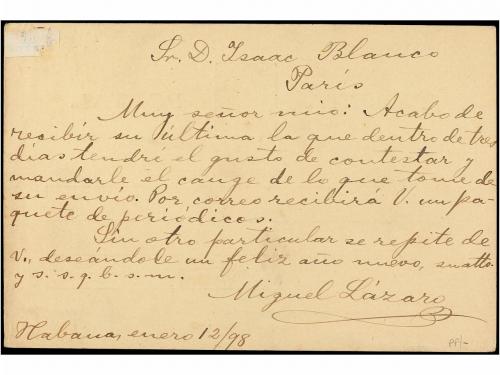 Sr. D. Isaac Blanco
París
Muy señor mio: Acabo de
recibir su última la que dentro de tres
dias tendré el gusto de contestar y
mandarle el cange de lo que tome de
su envío. Por correo recibirá V. un pa-
quete de periódicos.
Sin otro particular se repite de
V., deseandole un feliz año nuevo, su atto.
y s. s. q. b. s. m.
Miguel Lázaro
Habana, enero 12/98